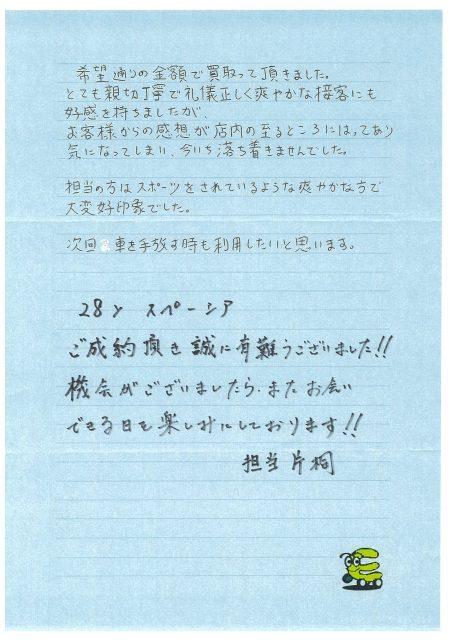 希望通りの金額で買取って頂きました。
とても親切丁寧で礼儀正しく爽やかな接客にも
好感を持ちましたが、
お客様からの感想が店内の至るところにはってあり
気になってしまい、今いち落ち着きませんでした。
担当の方はスポーツをされているような爽やかな方で
大変好印象でした。
次回 車を手放す時も利用したいと思います。
28y スペーシア
ご成約頂き誠に有難うございました!!
機会がございましたら、またお会い
できる日を楽しみにしております!!
担当片桐